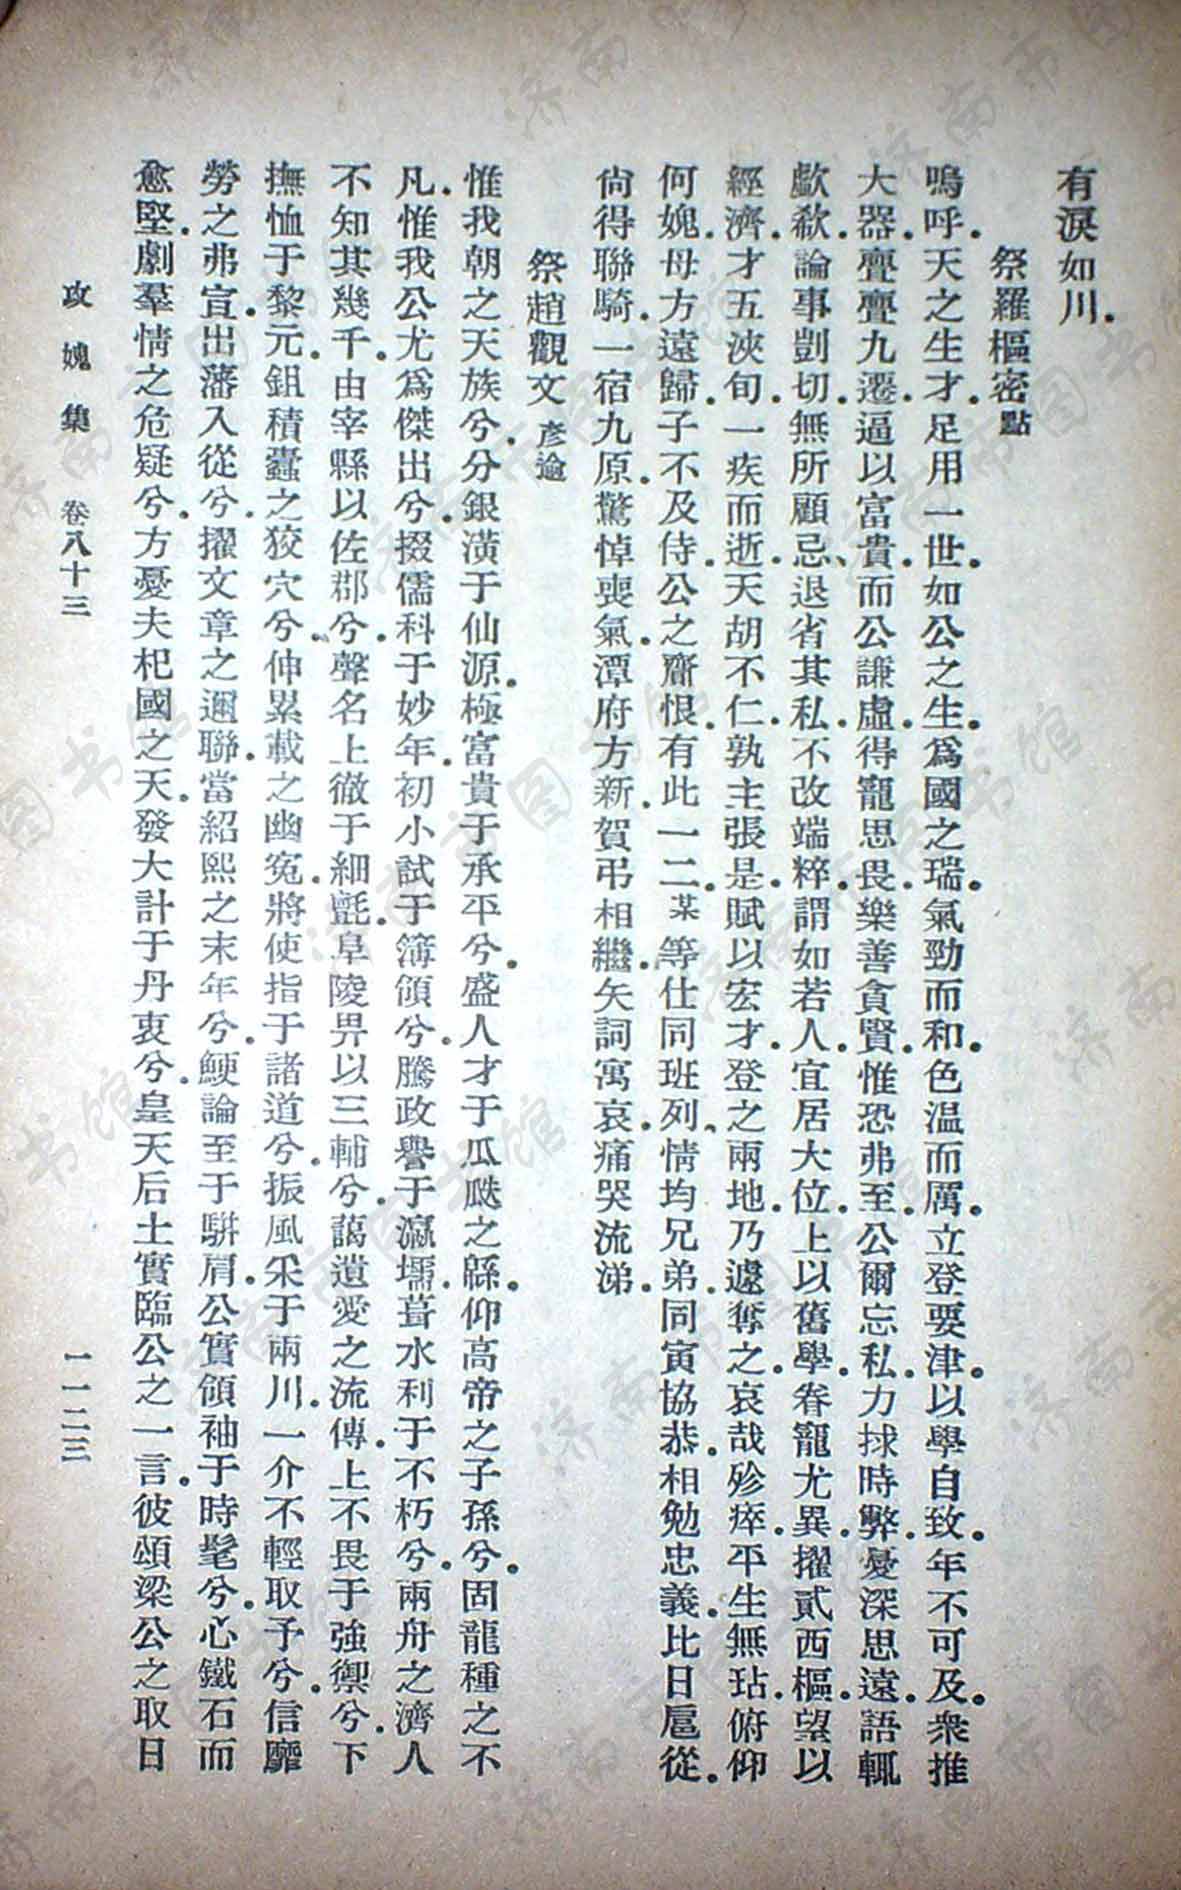 有淚如川。
祭羅樞密點
嗚呼。天之生才。足用一世。如公之生。爲國之瑞。氣勁而和。色温而厲。立登要津。以學自致。年不可及。衆推
大器。亹亹九遷。逼以富貴。而公謙虛。得寵思畏。樂善貪賢。惟恐弗至。公爾忘私。力捄時弊。憂深思遠。語輒
歔欷。論事剴切。無所顧忌、退省其私。不改端粹。謂如若人。宜居大位。上以舊學。眷寵尤異。擢貳西樞。望以
經濟。才五浹旬。一疾而逝。天胡不仁。孰主張是。賦以宏才。登之兩地。乃遽奪之。哀哉殄瘁。平生無玷。俯仰
何媿。母方遠歸。子不及侍。公之齎恨。有此一二。某等仕同班列、情均兄弟。同寅協恭。相勉忠義。比日扈從。
尙得聯騎。一宿九原。驚悼喪氣。潭府方新。賀弔相繼。矢詞寓哀。痛哭流涕。
祭趙觀文彥逾
惟我朝之天族兮。分銀潢于仙源。極富貴于承平兮。盛人才于瓜瓞之緜。仰高帝之子孫兮。固龍種之不
凡。惟我公尤爲傑出兮。掇儒科于妙年。初小試于簿領兮。騰政譽于瀛壖。葺水利于不朽兮。兩舟之濟人
不知其幾千。由宰縣以佐郡兮。聲名上徹于細氈。阜陵畀以三輔兮。藹遺愛之流傳。上不畏于強禦兮。下
撫恤于黎元。鉏積蠹之狡穴兮。伸累載之幽冤。將使指于諸道兮。振風采于兩川。一介不輕取予兮。信靡
勞之弗宣。出藩入從兮。擢文章之邇聯。當紹熙之末年兮。鯁論至于駢肩。公實領袖于時髦兮。心鐵石而
愈堅。劇羣情之危疑兮。方憂夫杞國之天。發大計于丹衷兮。皇天后土實臨公之一言。彼頌梁公之取日
攻媿集 卷八十三 一一二三